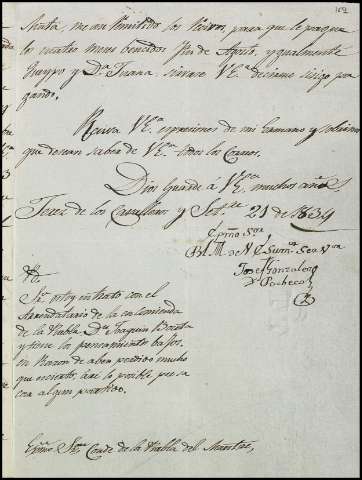 me an Remitido los Recivos, para que le pague
los cuatro meses bencidos fin de Agosto, y gualmente
Craypo y Dª Juana, sirvase VEª decirme si sigo pa
gando.
Reciva VEª expresiones de mi hermano y sobrino
que desean saber de VEª todos los Correos.
Dios Guarde á VEª muchos años
Jerez de los Caballeros y Set.re 21 de 1834
Exmo Sor
B L M de V E Sumº Seg Vor
Jose Gonzalez
Pacheco
Sr estoy en trato con el
Arrendatario de la encomienda
de la Puebla, Dn Joaquin
y tiene los pensamientos bajos,
en Razon de aber perdido mucho
que es cierto, are lo posible pr sa
car algun partido.
Exmo Sor Conde de la Puebla del Maestre,